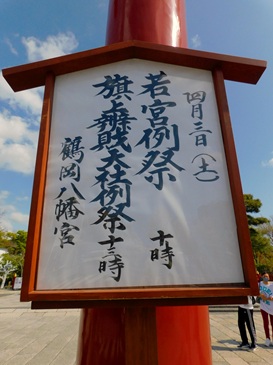 四月三日(土)
若宮例祭 十時
旗上辨財天社例祭 十三時
鶴岡八幡宮